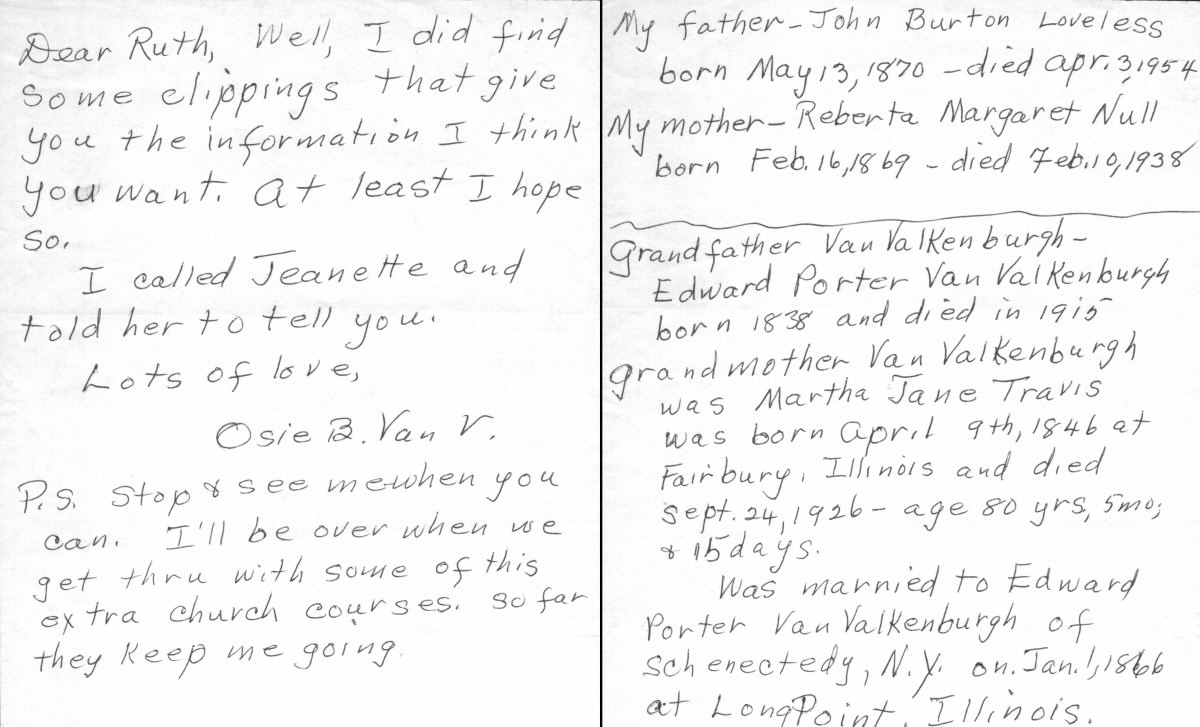 Dear Ruth, Well, I did find
some clippings that give
you the information I think
you want. At least I hope
so.
I called Jeanette and
told her to tell you.
Lots of love,
Osie B. Van V.
P.S. Stop & see me when you
can. I'll be over when we
get thru with some of this
extra church courses. So far
they keep me going.
My father - John Burton Loveless
born May 13, 1870 - died Apr. 3, 1954
My mother - Reberta Margaret Null
born Feb. 16, 1869 - died Feb. 10, 1938
Grandfather Van Valkenburgh -
Edward Porter Van Valkenburgh
born 1838 and died in 1915
Grandmother Van Valkenburgh
was Martha Jane Travis
was born April 9th, 1846 at
Fairbury, Illinois and died
Sept. 24, 1926 - age 80 yrs, 5mo;
& 15 days.
Was married to Edward
Porter Van Valkenburgh of
Schenectedy, N.Y. on Jan. 1, 1866
at Long Point, Illinois.